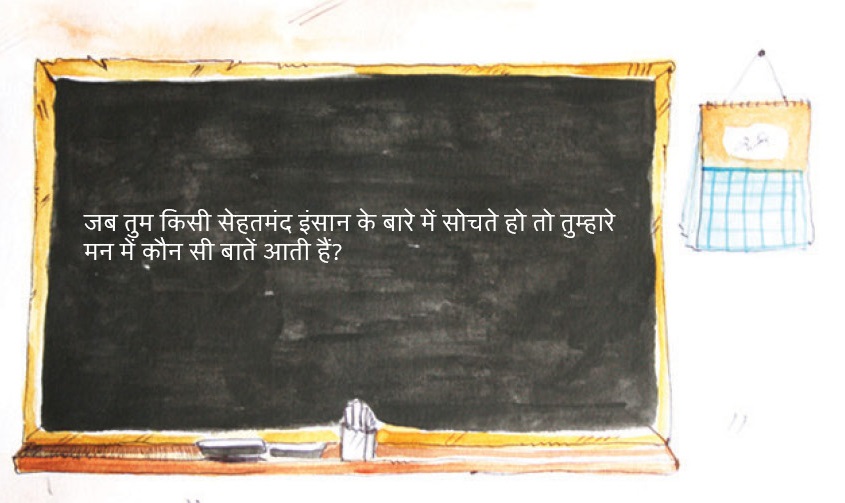 जब तुम किसी सेहतमंद इंसान के बारे में सोचते हो तो तुम्हारे
मन में कौन सी बातें आती हैं?